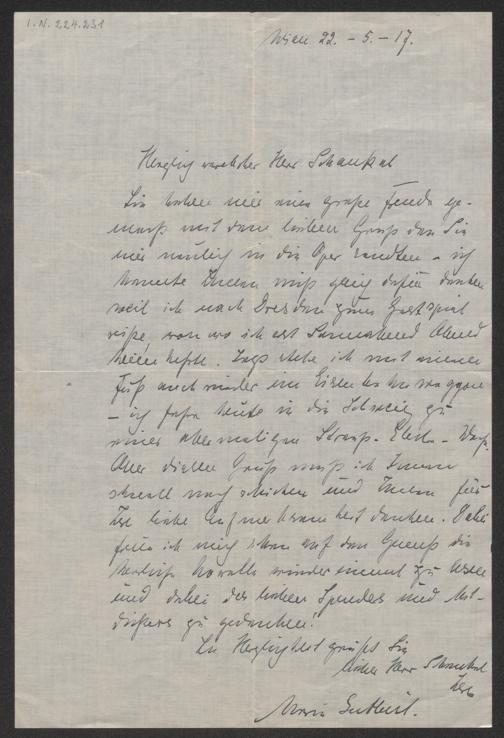 I.N. 224.231
Wien 22. - 5. - 17.
Herzlich verehrter Herr Schaukal
Sie haben mir eine große Freude ge-
macht mit dem lieben Gruß den Sie
mir neulich in die Oper sandten - ich
konnte Ihnen nicht gleich dafür danken
weil ich nach Dresden zum Gastspiel
reiste, von wo ich erst Sonnabend Abend
heimkehrte. Jetzt stehe ich mit einem
Fuß auch wieder im Eisenbahnwaggon
- ich fahre heute in die Schweiz zu
einer abermaligen Strauß-
Aber diesen Gruß muß ich Ihnen
schnell noch schicken und Ihnen für
Ihre liebe Aufmerksamkeit danken. Dabei
freue ich mich schon auf den Genuß die
herrliche Novelle wieder einmal zu lesen
und dabei des lieben Spenders und
Dichters zu gedenken!
In Herzlichkeit grüßt Sie
lieber Herr Schaukal
Ihre
Marie Gutheil.